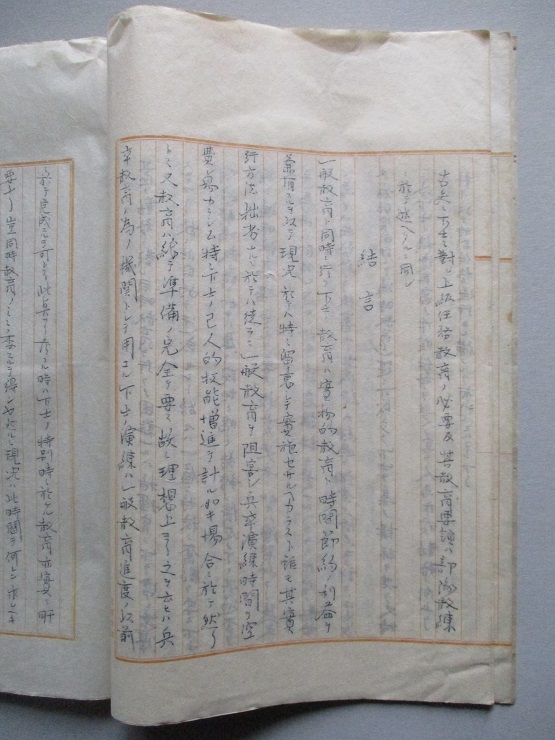 古兵ニ下士ニ對シ上級任務教育ノ必要及其教育要領ハ
於テ然ヘルニ同シ
結言
一般教育ト同時ニ行フ下士ノ教育ハ實物的教育ト時間節約ノ利益ヲ
兼有スルヲ以テ現況ニ於テハ特ニ留意シテ實施セサルヘカラスト雖モ其實
行方法拙劣ナルニ於テハ徒ラニ一般教育ヲ阻害シ兵卒演練時間ヲ空
費
特ニ下士ノ己人的技能増進ヲ計ル如キ場合ニ於テ然リ
トス又教育ハ總テ準備ノ完全ヲ要ス故ニ理想上ヨリ之ヲ云ヘハ兵
卒教育ノ為ノ機關トシテ用ユル下士ノ演練ハ一般教育進度ノ以前
時ハ下士ノ特別時ニ於ケル教育亦實ニ肝
要ナリ豈同時教育ノミ
現況ハ此時間ヲ何レニ求ムヘキ